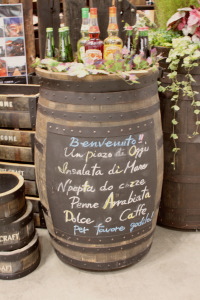 Benvenuto!!
Un piazo di Oggi
Insalata di Mare
Npepta do cozze
Penne Arrabiata
Dolce o Caffe
Per favore godetici
CRAFY